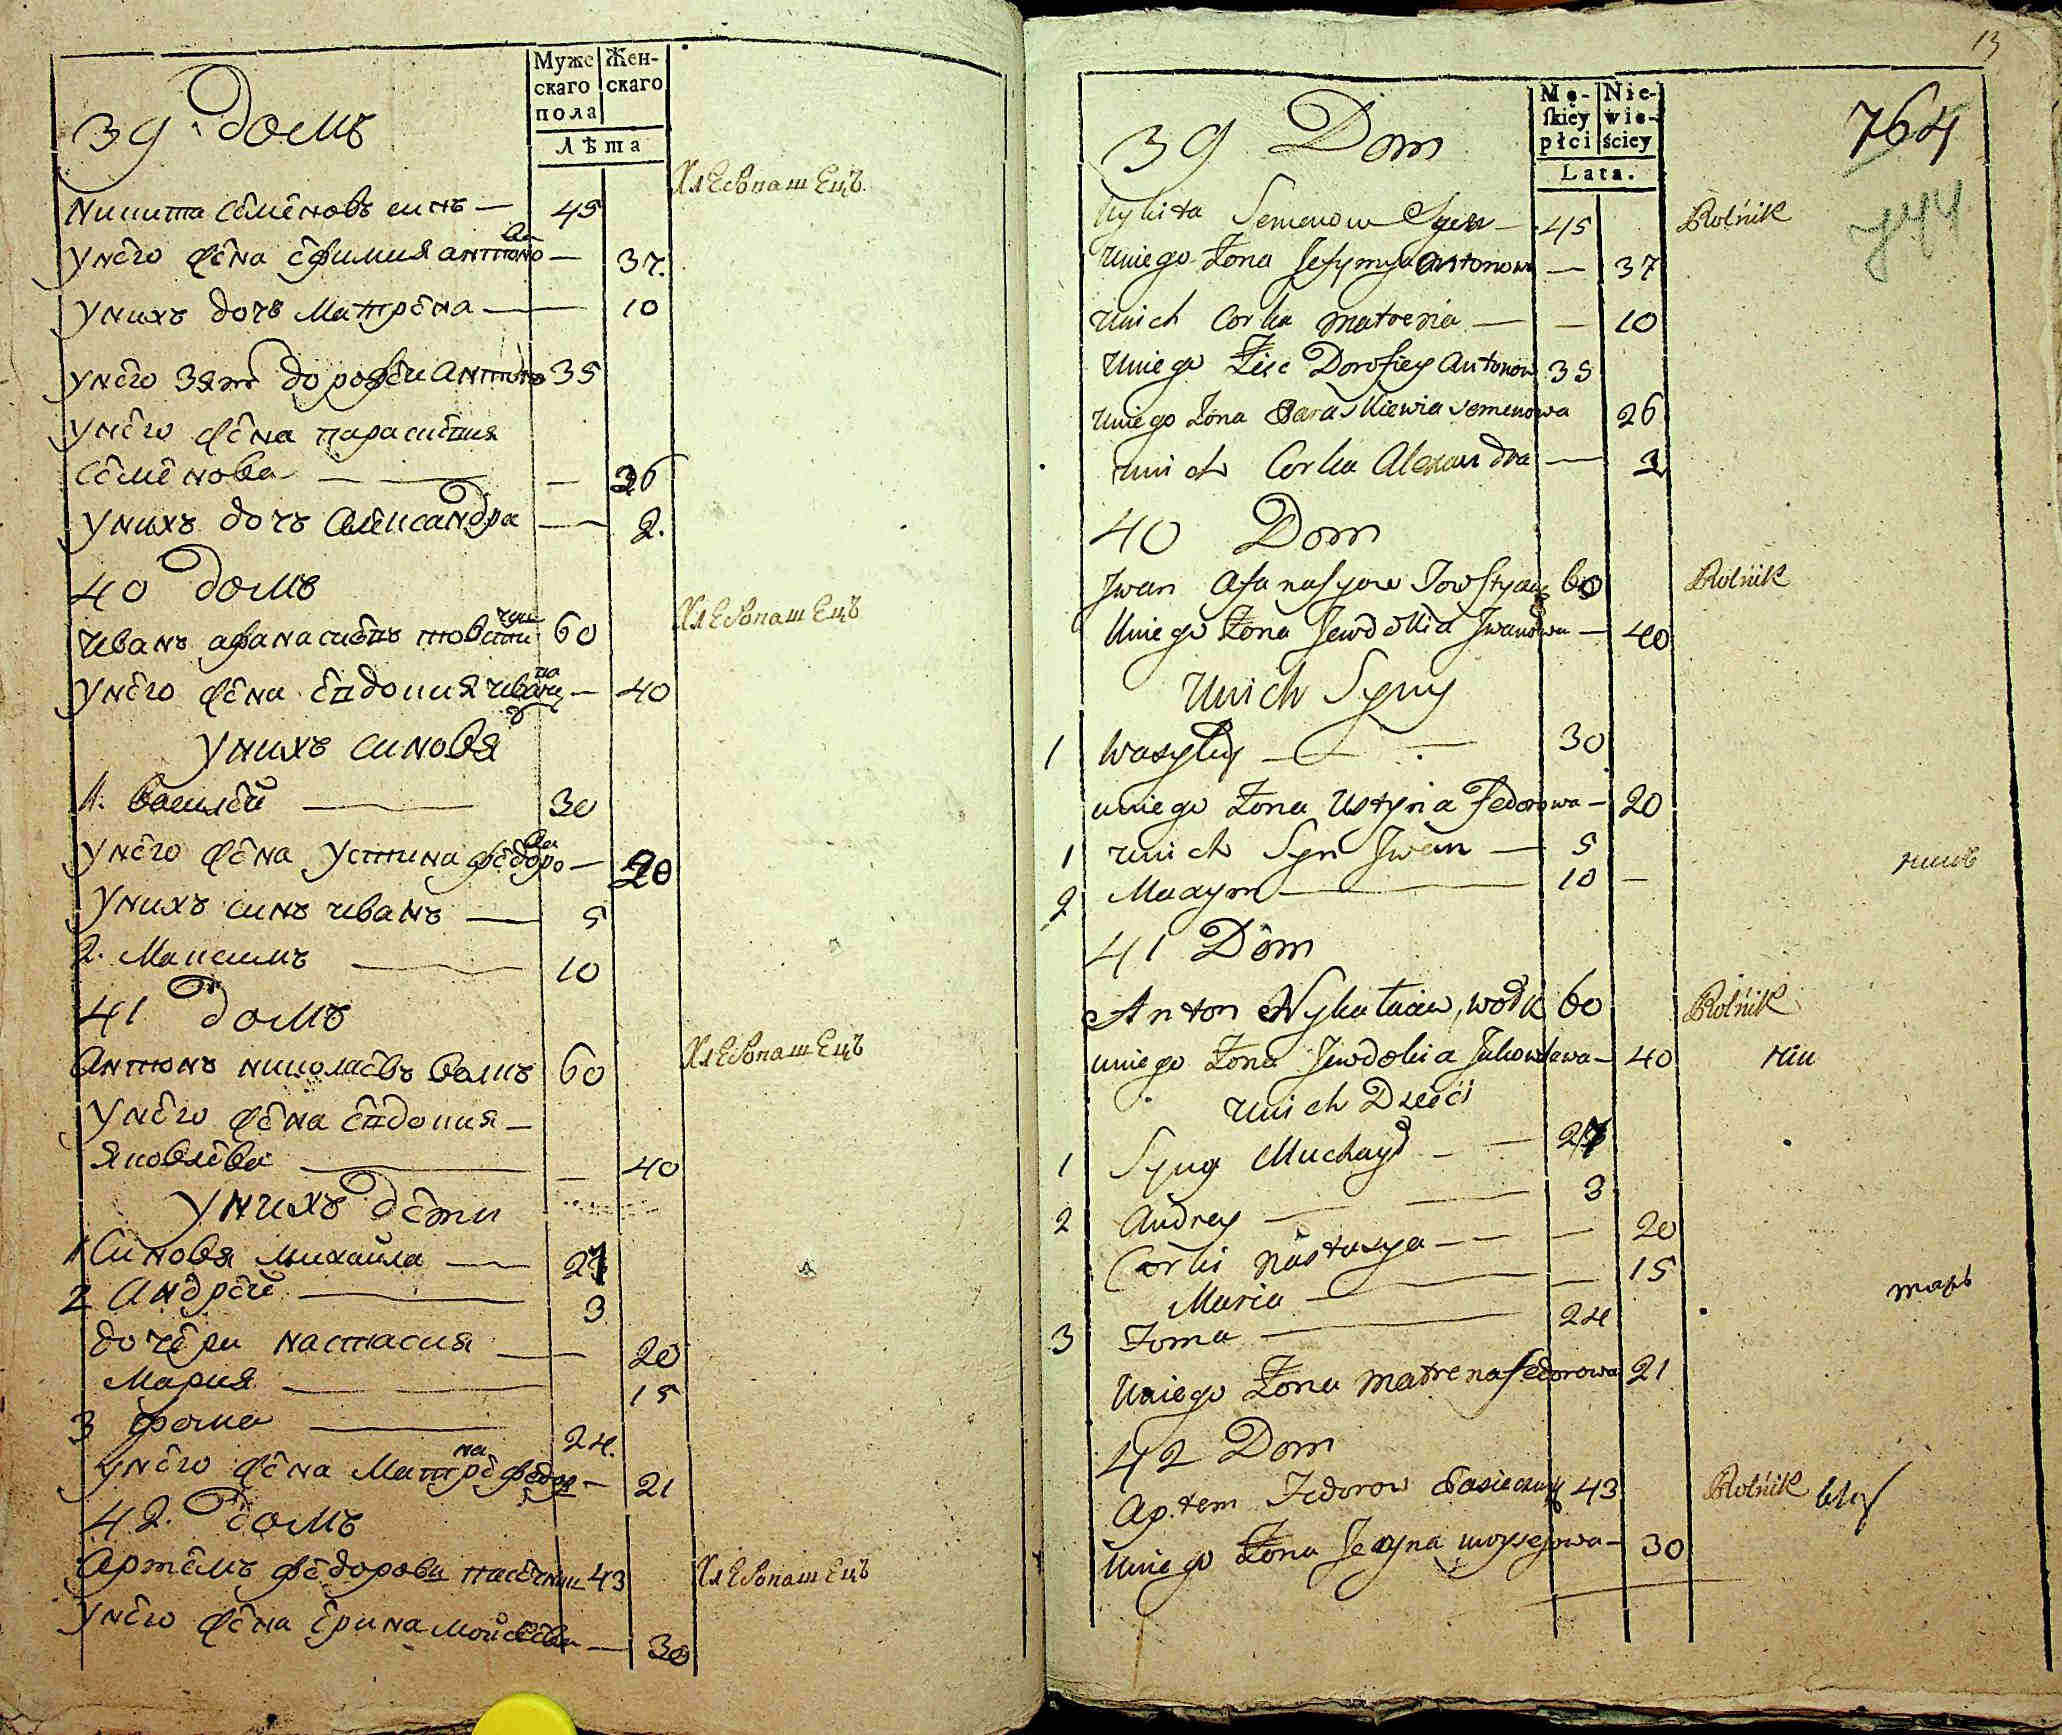 Муже Жен-
скаго скаго
пола
Лѣта
39. домъ
Хлебопашецъ
Никита семеновъ синъ — 45
Унего жена ефимия антоно ва — 37.
Унихъ дочъ Матрена — 10
Унего зять дорофеи антоно 35
Унего жена параскевия
семенова — — 26
Унихъ дочъ Александра — 2.
40 домъ
Хлебопашецъ
иванъ афанасиевъ 60
Унего жена евдокия ивано ва — 40
Унихъ синовя
1. василей — 30
Унего жена Устина федоро ва — 20
Унихъ синъ иванъ — 5
2. Максимъ — 10
41 домъ
Хлебопашецъ
Антонъ николаевъ волкъ 60
Унего жена евдокия —
яковлева — 40
Унихъ дети
1 Синовя михаила — 27
2 Андрей — 3
дочери настасия — 20
Мария — 15
3 фома — 24.
Унего жена Матрена федор — 21
42. домъ
Хлебопашецъ
Артемъ федорови пасечник 43
Унего жена ерина мойсеева — 30
13
Mę- Nie-
skiey wie-
płci ściey
Lata.
764
744
39 Dom
Nykita Semenow Syn — 45
Rolńik
Uniego Żona Jefymyia Antonowa — 37
Unich Corka Matrena — — 10
Uniego Zięc Dorofiey Antonow 35
Uniego Żona Paraskiewia Semenowa 26
Unich Corka Alexandra — 2
40 Dom
Jwan Afanasyow 60
Rolńik
Uniego Żona Jewdokia Jwanowa — 40
Unich Syny
1 Wasyley — 30
Uniego Żona Ustyna Fedorowa — 20
1 Unich Syn Jwan — 5
2 Maxym — 10 —
41 Dom
Anton Nykałaiow, wołk 60
Rolńik
Uniego Żona Jewdokia Jakowlewa — 40
Unich Dzieci
1 Syny Muchaył — — 27
2 Andrey — 3
Corki Nastasya — — — 20
Maria — — 15
3 Foma — 24
Uniego Żona Matrena Fedorowa 21
42 Dom
Aptem Fedorow Pasiecznyk 43
Rolńik
Uniego Żona Jeryna moyseiowa — 30